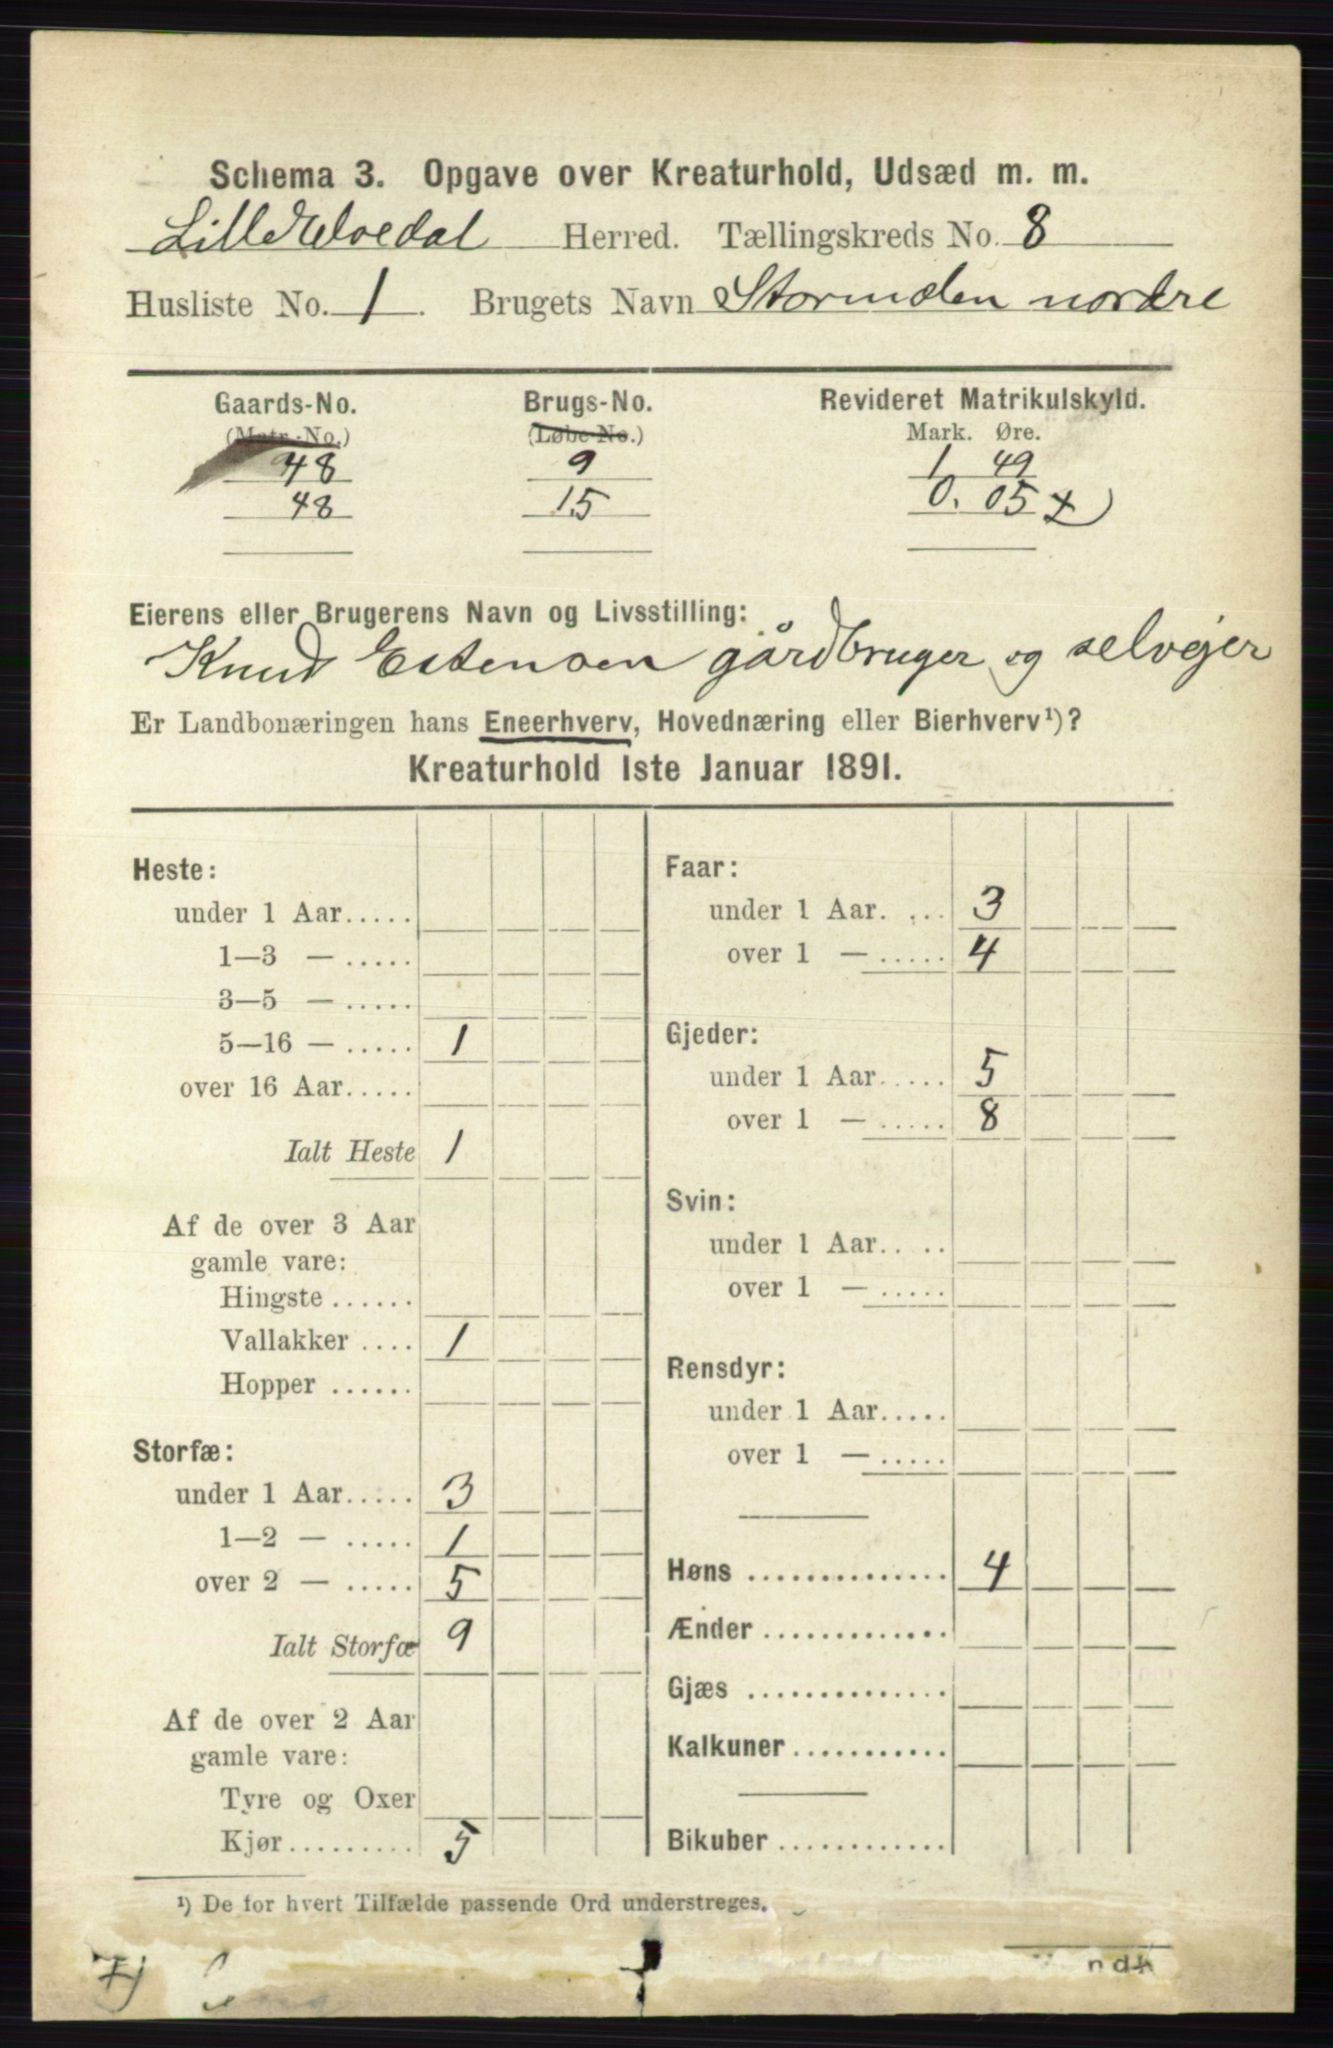 Schema 3. Opgave over Kreaturhold, Udsæd m. m.
Lille Elvedal Herred. Tællingskreds No. 8
Husliste No. 1. Brugets Navn Stormoen nordre
Gaards-No. Brugs-No. Revideret Matrikulskyld.
(Matr.-No.) (Løbe-No.) Mark. Øre.
48 9 1 49
48 15 0. 05 x)
Eierens eller Brugerens Navn og Livsstilling:
Knud Estensen gårdbruger og selvejer
Er Landbonæringen hans Eneerhverv, Hovednæring eller Bierhverv¹)?
Kreaturhold 1ste Januar 1891.
Heste:
under 1 Aar.....
1—3 — .....
3—5 — .....
5—16 — ..... 1
over 16 Aar.....
Ialt Heste 1
Af de over 3 Aar
gamle vare:
Hingste ......
Vallakker .... 1
Hopper ......
Storfæ:
under 1 Aar..... 3
1—2 — ..... 1
over 2 — ..... 5
Ialt Storfæ 9
Af de over 2 Aar
gamle vare:
Tyre og Oxer
Kjør......... 5
Faar:
under 1 Aar. ... 3
over 1 — ..... 4
Gjeder:
under 1 Aar..... 5
over 1 — ..... 8
Svin:
under 1 Aar.. ..
over 1 — .....
Rensdyr:
under 1 Aar.....
over 1 — .....
Høns .............. 4
Ænder .............
Gjæs ..............
Kalkuner...........
Bikuber ............
¹) De for hvert Tilfælde passende Ord understreges.